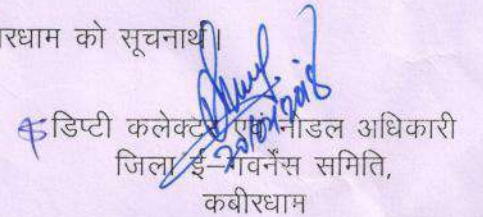 रधाम को सूचनार्थ।
डिप्टी कलेक्टर एवं नोडल अधिकारी
जिला ई–गवर्नेंस समिति,
कबीरधाम